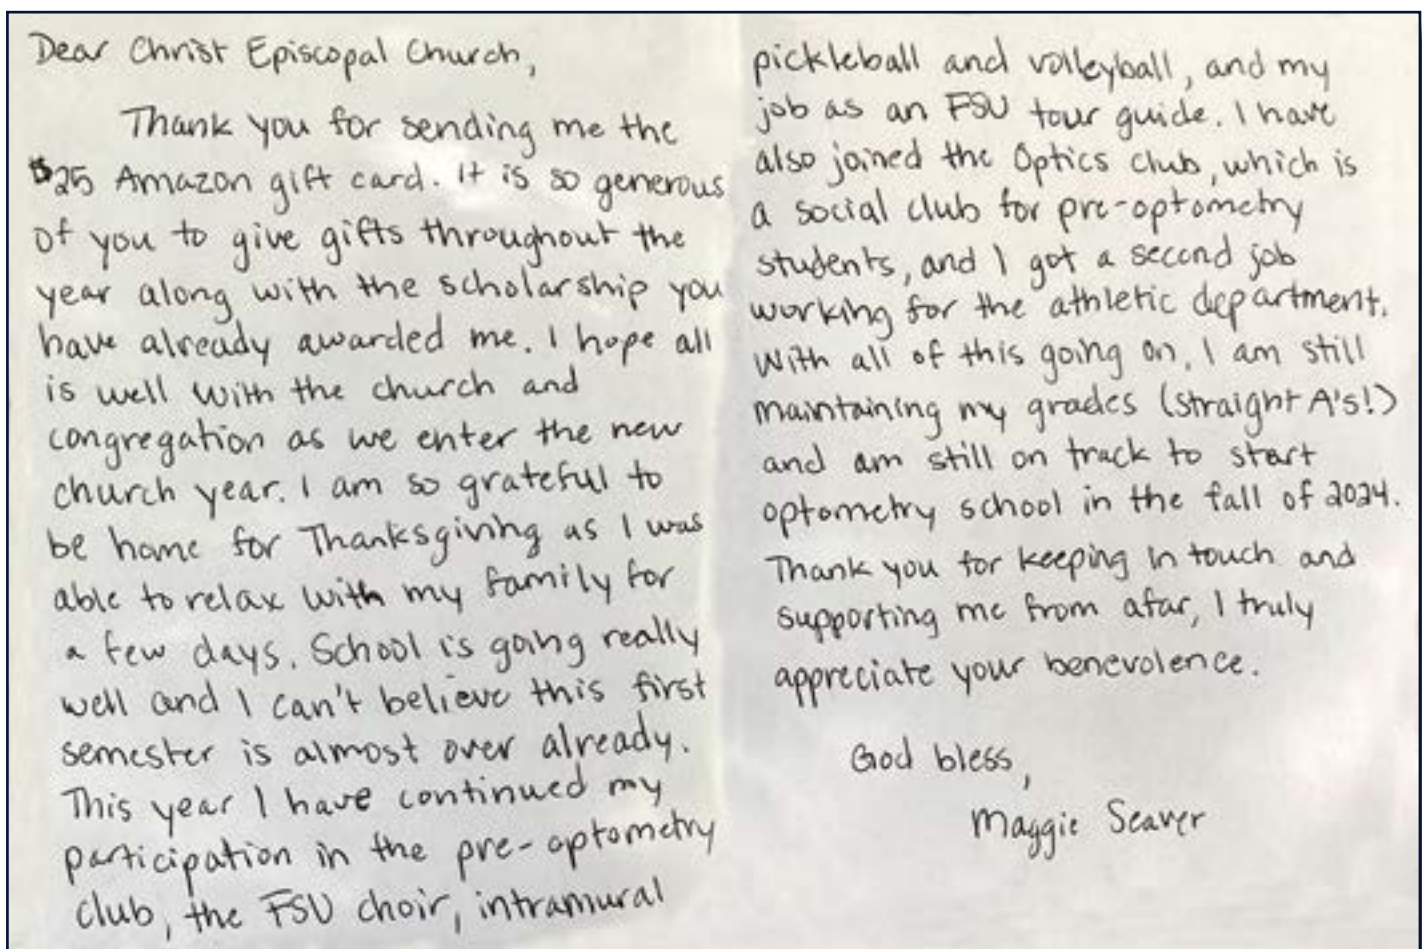 Dear Christ Episcopal Church,
Thank you for sending me the
$25 Amazon gift card. It is so generous
of you to give gifts throughout the
year along with the scholarship you
have already awarded me. I hope all
is well with the church and
congregation as we enter the new
church year. I am so grateful to
be home for Thanksgiving as I was
able to relax with my family for
a few days. School is going really
well and I can't believe this first
semester is almost over already.
This year I have continued my
participation in the pre-optometry
club, the FSU choir, intramural
pickleball and volleyball, and my
job as an FSU tour guide. I have
also joined the Optics club, which is
a social club for pre-optometry
students, and I got a second job
working for the athletic department.
With all of this going on, I am still
maintaining my grades (straight A's!)
and am still on track to start
optometry school in the fall of 2024.
Thank you for keeping in touch and
supporting me from afar, I truly
appreciate your benevolence.
God bless,
Maggie Seaver